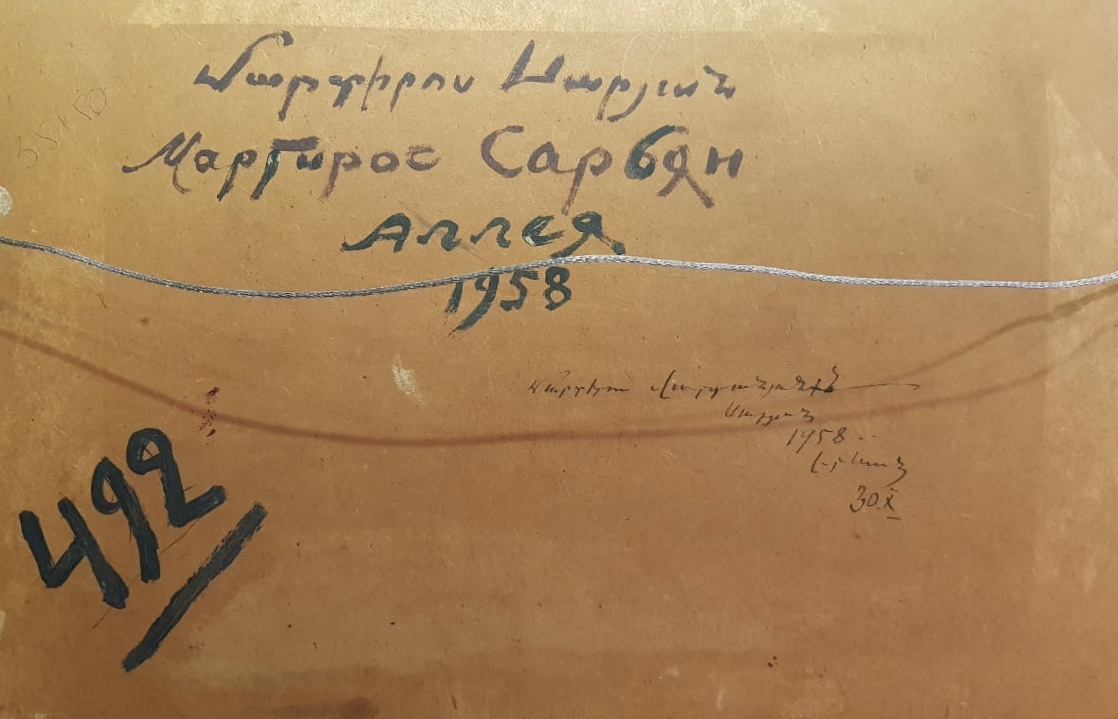 Մարտիրոս Սարյան
Мартирос Сарьян
Аллея.
1958
Մարտիրոս
Սարյան
1958
Երևան
30.X
492